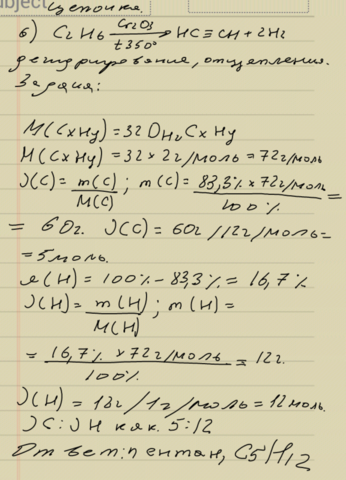 цепочка.
б) C2H6 Cr2O3 t350° → HC≡CH + 2H2
дегидрирование, отщепления.
Задача:
M(CxHy) = 32 DH2 CxHy
M(CxHy) = 32 x 2г/моль = 72г/моль
J(C) = m(C) / M(C) ; m(C) = 83,3% x 72г/моль / 100% =
= 60г. J(C) = 60г / 12г/моль =
= 5моль.
(H) = 100% - 83,3% = 16,7%
J(H) = m(H) / M(H) ; m(H) =
= 16,7% x 72г/моль / 100% = 12г.
J(H) = 12г / 1г/моль = 12моль.
JC : JH как 5:12
Ответ: пентан, C5H12